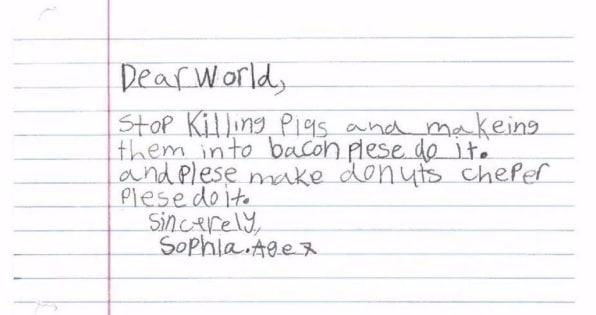 Dear World,
Stop Killing Pigs and makeing
them into bacon plese do it.
and plese make donuts cheper
Plese do it.
Sincerely,
Sophia. Age 7